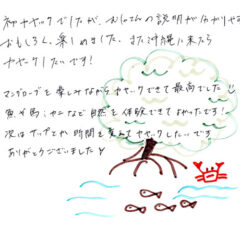 初カヤックでしたが、おにてんの説明が分かりやすく
おもしろく、楽しめました。また沖縄に来たら
カヤックしたいです!
マングローブを楽しみながらカヤックできて最高でした
魚や鳥、カニなど自然を体験できてよかったです!
次はナイトとか時間を変えてカヤックしたいです
ありがとうございました